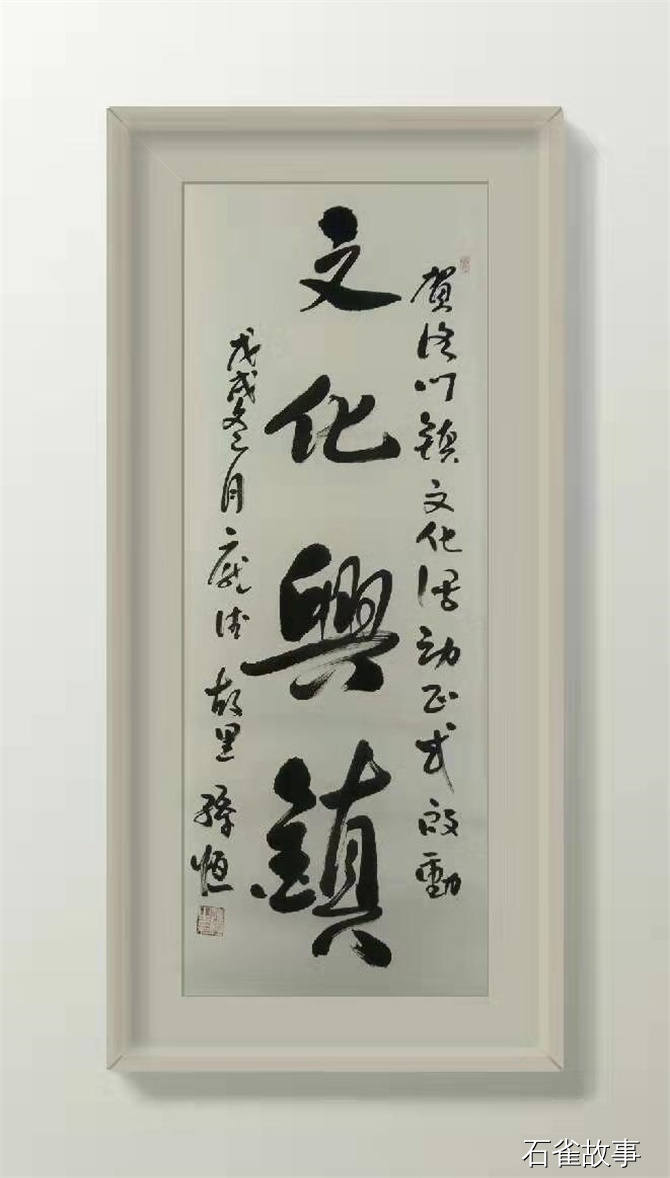 文化興鎮
贺洛门鎮文化活动正式啟動
戊戌月龐德故里孫恒
石雀故事